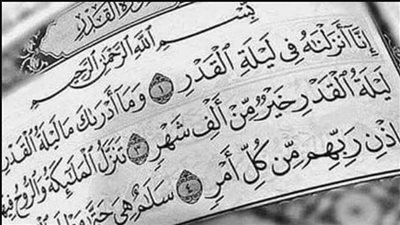 سُورَةُ الْقَدْرِ
بِسْمِ ٱللَّهِ ٱلرَّحْمَٰنِ ٱلرَّحِيمِ
إِنَّآ أَنزَلْنَٰهُ فِى لَيْلَةِ ٱلْقَدْرِ ١ وَمَآ أَدْرَىٰكَ مَا لَيْلَةُ ٱلْقَدْرِ
لَيْلَةُ ٱلْقَدْرِ خَيْرٌ مِّنْ أَلْفِ شَهْرٍ ٣ تَنَزَّلُ ٱلْمَلَٰٓئِكَةُ وَٱلرُّوحُ فِيهَا
بِإِذْنِ رَبِّهِم مِّن كُلِّ أَمْرٍ ٤ سَلَٰمٌ هِىَ حَتَّىٰ